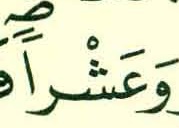 وَعَشْراًۖ